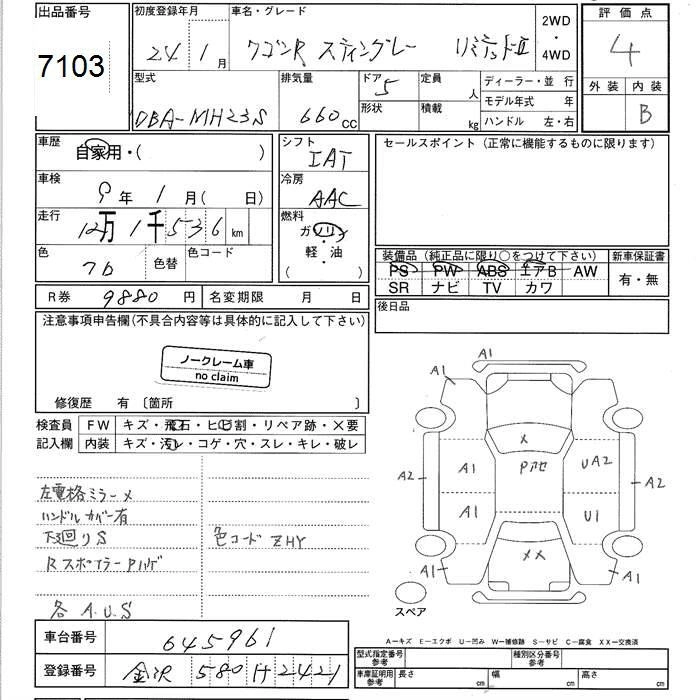 出品番号
7103
初度登録年月
24 1月
車名・グレード
ワゴンR スティングレー リミテッドII
2WD
・
4WD
評価点
4
外装 内装
B
型式
DBA-MH23S
排気量
660cc
ドア
5
形状
定員
人
積載
kg
ディーラー・並 行
モデル年式 年
ハンドル 左・右
車歴
自家用・( )
車検
9年 1月( 日)
走行
12万1千536km
色
フb
色替
色コード
R券 9880円
名変期限 月 日
シフト
IAT
冷房
AAC
燃料
ガソリン
軽・油
( )
セールスポイント(正常に機能するものに限ります)
装備品(純正品に限り○をつけて下さい)
PS PW ABS エアB AW
SR ナビ TV カワ
新車保証書
有・無
後日品
注意事項申告欄(不具合内容等は具体的に記入して下さい)
ノークレーム車
no claim
修復歴 有〔箇所 〕
検査員
記入欄
FW キズ・飛石・ヒビ割・リペア跡・×要
内装 キズ・汚レ・コゲ・穴・スレ・キレ・破レ
左電格ミラー×
ハンドルカバー有
下廻りS
Rスポイラー Pハゲ
各 A.U.S
色コード ZHY
A1
A1
A1
×
Pアセ
A1
UA2
A2
A2
A1
U1
××
A1
A1
スペア
A−キズ E−エクボ U−凹み W−補修跡 S−サビ C−腐食 XX−交換済
車台番号 645961
登録番号 金沢 580 H 2421
型式指定番号
参考
種別区分番号
参考
車庫証明用
参考
長さ cm
幅 cm
高さ cm